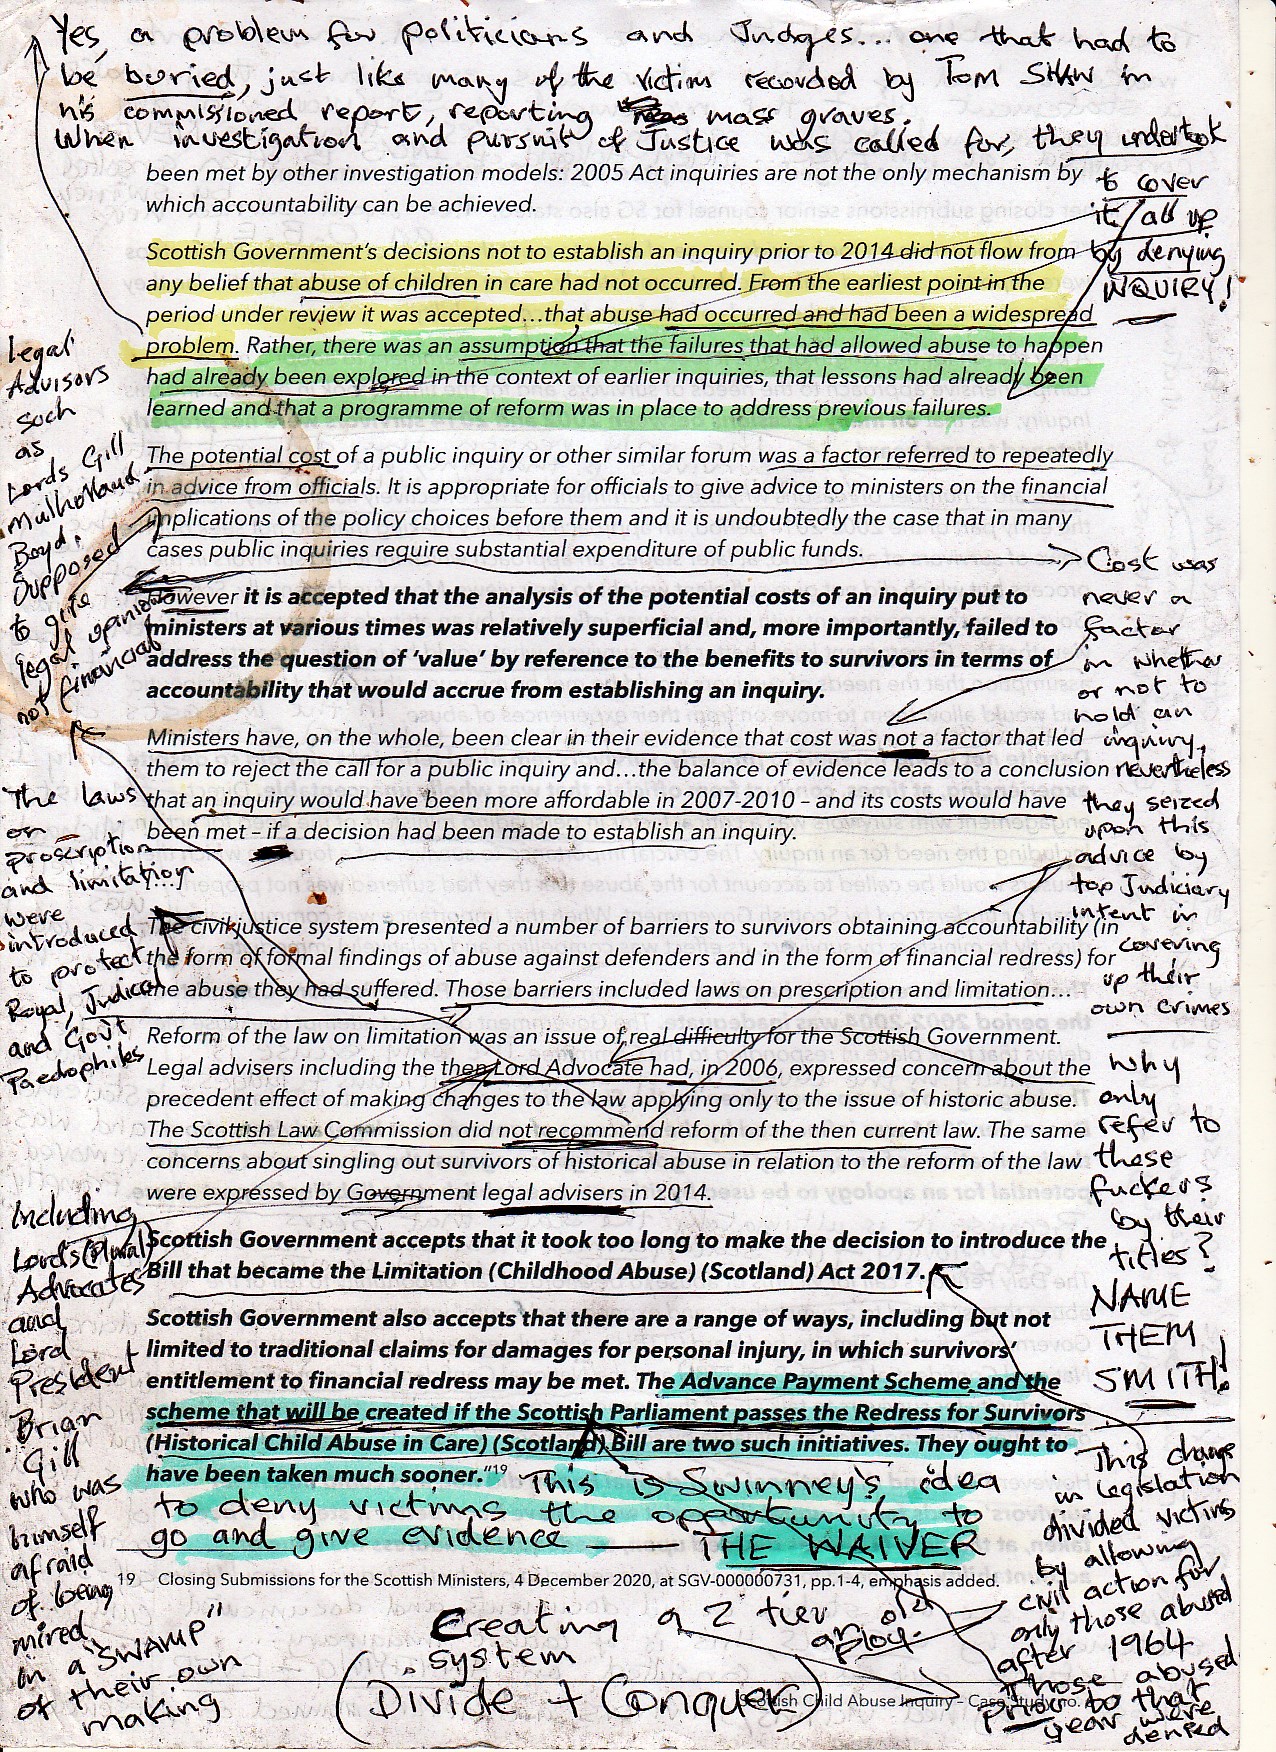 Yes, a problem for politicians and Judges... one that had to
be buried, just like many of the victim recorded by Tom SHAW in
his commissioned report, reporting mass graves.
When investigation and pursuit of Justice was called for, they undertook
to cover
it all up
by denying
INQUIRY!
been met by other investigation models: 2005 Act inquiries are not the only mechanism by
which accountability can be achieved.
Scottish Government's decisions not to establish an inquiry prior to 2014 did not flow from
any belief that abuse of children in care had not occurred. From the earliest point in the
period under review it was accepted...that abuse had occurred and had been a widespread
problem. Rather, there was an assumption that the failures that had allowed abuse to happen
had already been explored in the context of earlier inquiries, that lessons had already been
learned and that a programme of reform was in place to address previous failures.
The potential cost of a public inquiry or other similar forum was a factor referred to repeatedly
in advice from officials. It is appropriate for officials to give advice to ministers on the financial
implications of the policy choices before them and it is undoubtedly the case that in many
cases public inquiries require substantial expenditure of public funds.
However it is accepted that the analysis of the potential costs of an inquiry put to
ministers at various times was relatively superficial and, more importantly, failed to
address the question of 'value' by reference to the benefits to survivors in terms of
accountability that would accrue from establishing an inquiry.
Ministers have, on the whole, been clear in their evidence that cost was not a factor that led
them to reject the call for a public inquiry and...the balance of evidence leads to a conclusion
that an inquiry would have been more affordable in 2007-2010 – and its costs would have
been met – if a decision had been made to establish an inquiry.
The civil justice system presented a number of barriers to survivors obtaining accountability (in
the form of formal findings of abuse against defenders and in the form of financial redress) for
the abuse they had suffered. Those barriers included laws on prescription and limitation...
Reform of the law on limitation was an issue of real difficulty for the Scottish Government.
Legal advisers including the then Lord Advocate had, in 2006, expressed concern about the
precedent effect of making changes to the law applying only to the issue of historic abuse.
The Scottish Law Commission did not recommend reform of the then current law. The same
concerns about singling out survivors of historical abuse in relation to the reform of the law
were expressed by Government legal advisers in 2014.
Scottish Government accepts that it took too long to make the decision to introduce the
Bill that became the Limitation (Childhood Abuse) (Scotland) Act 2017.
Scottish Government also accepts that there are a range of ways, including but not
limited to traditional claims for damages for personal injury, in which survivors'
entitlement to financial redress may be met. The Advance Payment Scheme and the
scheme that will be created if the Scottish Parliament passes the Redress for Survivors
(Historical Child Abuse in Care) (Scotland) Bill are two such initiatives. They ought to
have been taken much sooner."19
This is Swinney's idea
to deny victims the opportunity to
go and give evidence — THE WAIVER
19 Closing Submissions for the Scottish Ministers, 4 December 2020, at SGV-000000731, pp.1-4, emphasis added.
Creating a 2 tier
system
an old
ploy.
(Divide + Conquer)
Scottish Child Abuse Inquiry – Case Study no.
Legal
Advisors
such
as
Lords Gill
Mulholland
Boyd.
Supposed
to give
legal opinion
not financial
The laws
on
proscription
and limitation...
were
introduced
to protect
Royal, Judical
and Gov't
Paedophiles
Including
Lords (Plural)
Advocates
and
Lord
President
Brian
Gill
who was
himself
afraid
of being
mired
in a "SWAMP"
of their own
making
Cost was
never a
factor
in whether
or not to
hold an
inquiry,
nevertheless
they seized
upon this
advice by
top Judiciary
intent in
covering
up their
own crimes
Why
only
refer to
these
fuckers
by their
titles?
NAME
THEM
SMITH!
This change
in legislation
divided victims
by allowing
civil action for
only those abused
after 1964
Those abused
prior to that
year were
denied